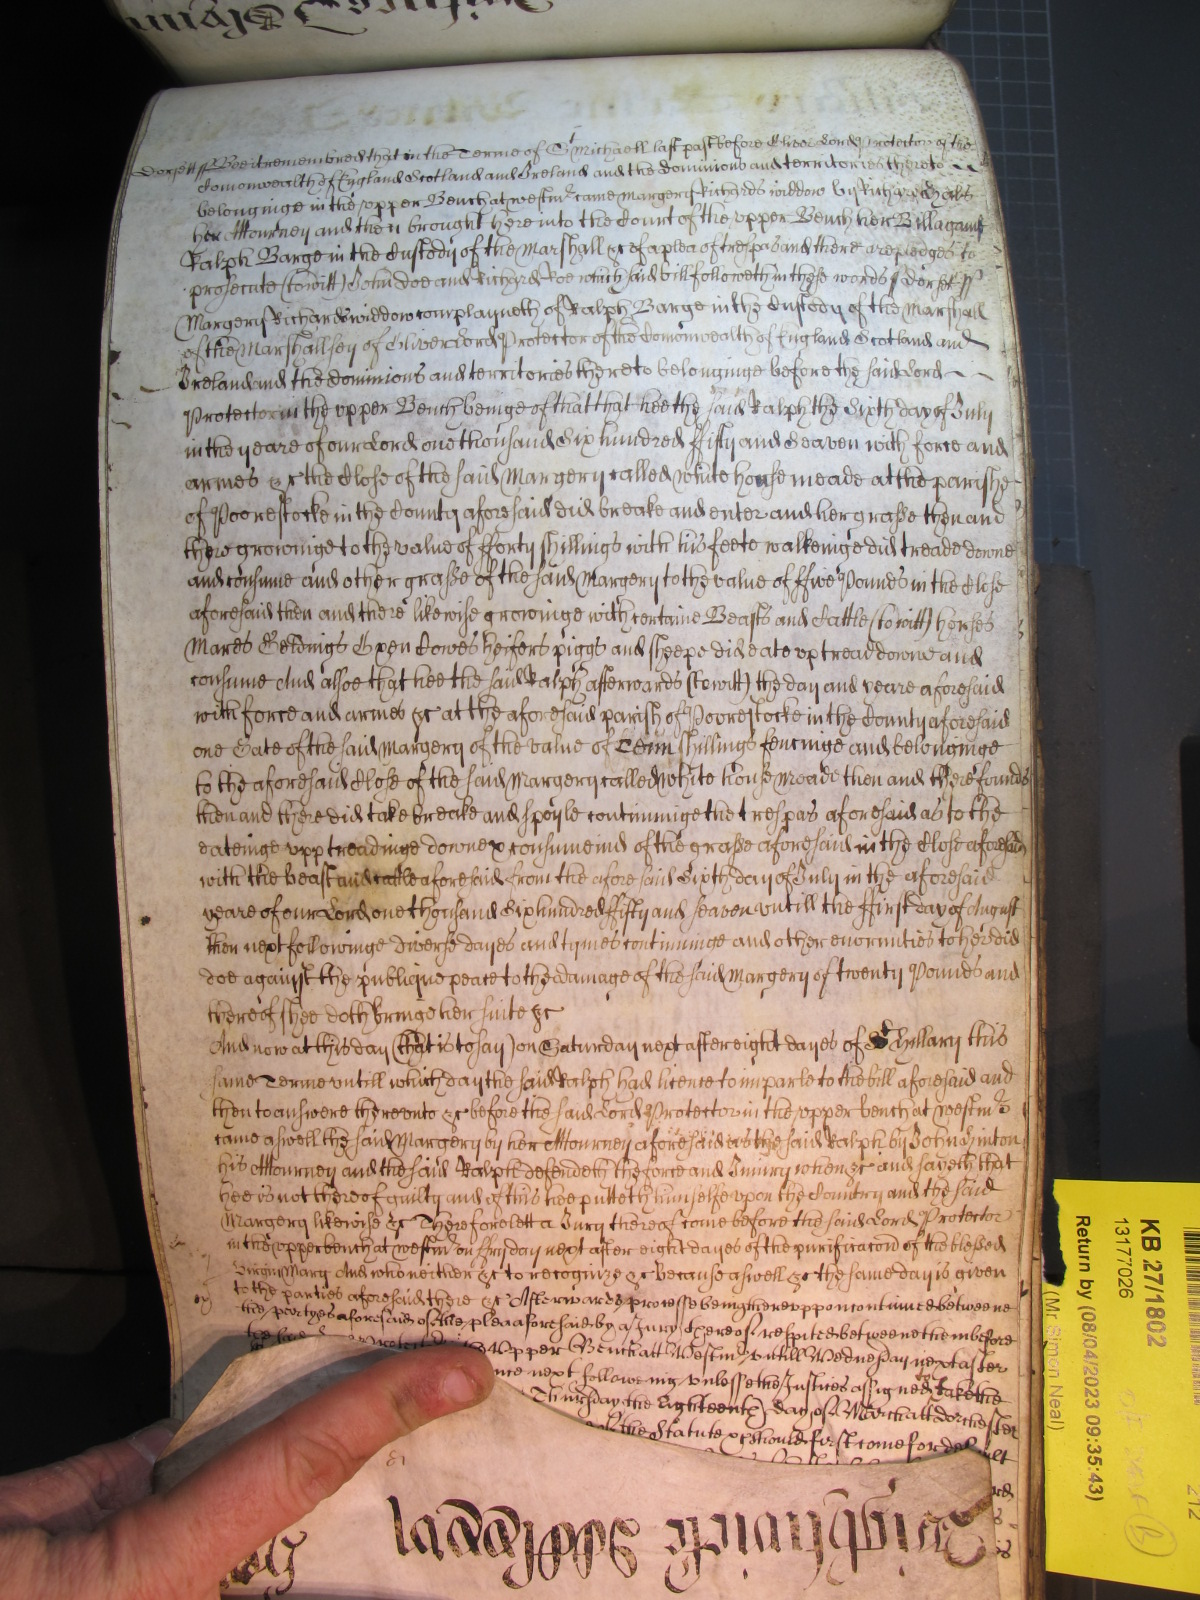 Dorsett ss Bee it remembred that in the Terme of St Michaell last past before Oliver Lord Protector of the
Comonwealth of England Scotland and Ireland and the dominions and territories thereto
belonginge in the upper Bench at westmr came Margery Richards widdow by Richard
her Attourney and then brought here into the Court of the upper Bench her Bill against
Ralph Barge in the Custody of the Marshall &c of a plea of trespas and there are pledges to
prosecute (to witt) John doe and Richard Roe which said bill followeth in these words / Dorset ss
Margery Richards widdow complayneth of Ralph Barge in the Custody of the Marshall
of the Marshallsey of Oliver Lord Protector of the Comonwealth of England Scotland and
Ireland and the dominions and territories thereto belonginge before the said Lord
Protector in the upper Bench beinge of that that hee the said Ralph the Sixth day of July
in the yeare of our Lord one thousand Six hundred fifty and Seaven with force and
armes &c the Close of the said Margery called white house meade at the parishe
of Poorestocke in the County aforesaid did breake and enter and her grasse then and
there growinge to the value of fforty shillings with his feete walkeinge did treade downe
and consume and other grasse of the said Margery to the value of ffive Pounds in the Close
aforesaid then and there likewise growinge with certaine Beasts and Cattle (to witt) horses
Mares Geldings Oxen Cowes heifers piggs and sheepe did eate up tread downe and
consume And alsoe that hee the said Ralph afterwards (to witt) the day and yeare aforesaid
with force and armes &c at the aforesaid parish of Poorestocke in the County aforesaid
one Gate of the said Margery of the value of Tenn shillings fencinge and belonginge
to the aforesaid Close of the said Margery called white house meade then and there founde
then and there did take breake and spoyle continuinge the trespas aforesaid as to the
eateinge upp treadinge downe & consumeind of the grasse aforesaid in the Close aforesaid
with the beast and cattle aforesaid from the afore said Sixth day of July in the aforesaid
yeare of our Lord one thousand Six hundred fifty and seaven untill the ffirst day of August
then next followinge diverse dayes and tymes continuinge and other enormities to her did
doe against the publique peace to the damage of the said Margery of twenty Pounds and
thereof shee doth bringe her suite &c
And now at this day (that is to say) on Saturday next after eight dayes of St Hyllary this
same Terme untill which day the said Ralph had licence to imparle to the bill aforesaid and
then to answere thereunto &c before the said Lord Protector in the upper bench at westmr
came aswell the said Margery by her Attourney aforesaid as the said Ralph by John Hinton
his Attourney and the said Ralph defendeth the force and Iniury when &c and sayeth that
hee is not thereof guilty and of this hee putteth himselfe upon the Country and the said
Margery likewise &c Therefore lett a Jury thereof come before the said Lord Protector
in the upper bench at westmr on ffryday next after eight dayes of the purificacon of the blessed
Virgin Mary And who neither &c to recognize &c because aswell &c the same day is given
to the parties aforesaid there &c Afterwards processe being thereuppon continued betweene
the partyes aforesaid of the plea aforesaid by a Jury thereof respited betweene them before
Upper Bench att Westmr untill Wednesday next after
next following unlesse the Justices assigned to take the
Thursday the Eighteenth day of March att dorchester
of the Statute &c should first come for default
KB 27/1802
13177026
Return by (08/04/2023 09:35:43)
(Mr Simon Neal)
212